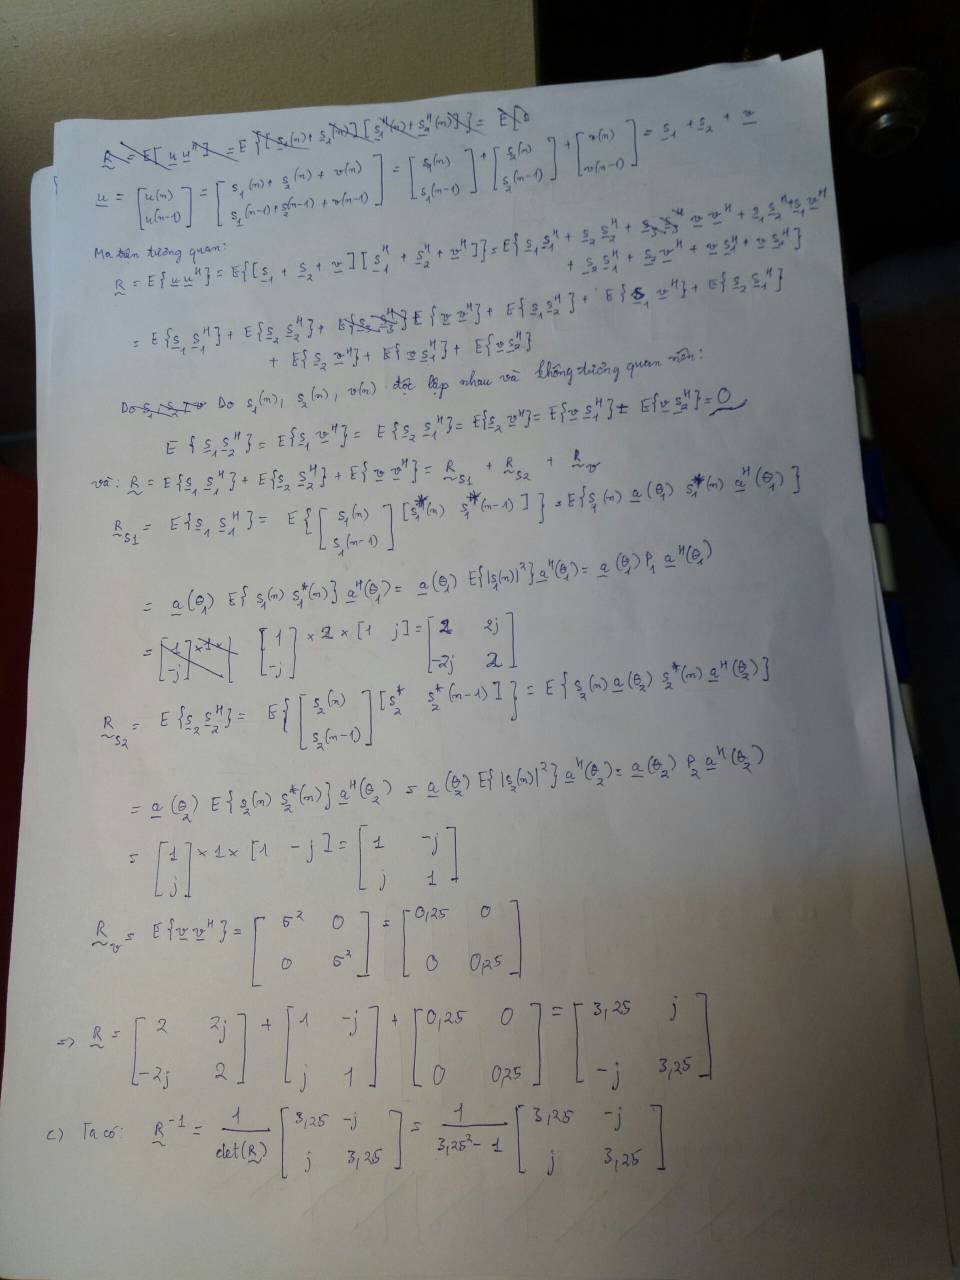 R = E[u u^H] = E{[s_1(n) + s_2(n)][s_1^H(n) + s_2^H(n)]} = E[s
u = [u(n); u(n-1)] = [s_1(n) + s_2(n) + v(n); s_1(n-1) + s_2(n-1) + v(n-1)] = [s_1(n); s_1(n-1)] + [s_2(n); s_2(n-1)] + [v(n); v(n-1)] = s_1 + s_2 + v
Ma trận tương quan:
R = E{u u^H} = E{[s_1 + s_2 + v][s_1^H + s_2^H + v^H]} = E{s_1 s_1^H + s_2 s_2^H + s_3 s_3^H v v^H + s_1 s_2^H + s_1 v^H
+ s_2 s_1^H + s_2 v^H + v s_1^H + v s_2^H}
= E{s_1 s_1^H} + E{s_2 s_2^H} + E{s_3 s_3^H} + E{v v^H} + E{s_1 s_2^H} + E{s_1 v^H} + E{s_2 s_1^H}
+ E{s_2 v^H} + E{v s_1^H} + E{v s_2^H}
Do s_1 s_2 v Do s_1(n), s_2(n), v(n) độc lập nhau và không tương quan nên:
E{s_1 s_2^H} = E{s_1 v^H} = E{s_2 s_1^H} = E{s_2 v^H} = E{v s_1^H} = E{v s_2^H} = 0
và: R = E{s_1 s_1^H} + E{s_2 s_2^H} + E{v v^H} = R_s1 + R_s2 + R_v
R_s1 = E{s_1 s_1^H} = E{[s_1(n); s_1(n-1)] [s_1^*(n) s_1^*(n-1)]} = E{s_1(n) a(θ_1) s_1^*(n) a^H(θ_1)}
= a(θ_1) E{s_1(n) s_1^*(n)} a^H(θ_1) = a(θ_1) E{|s_1(n)|^2} a^H(θ_1) = a(θ_1) P_1 a^H(θ_1)
= [1; -j] × 1 × [ [1; -j] × 2 × [1 j] = [2 2j; -2j 2]
R_s2 = E{s_2 s_2^H} = E{[s_2(n); s_2(n-1)] [s_2^* s_2^*(n-1)]} = E{s_2(n) a(θ_2) s_2^*(n) a^H(θ_2)}
= a(θ_2) E{s_2(n) s_2^*(n)} a^H(θ_2) = a(θ_2) E{|s_2(n)|^2} a^H(θ_2) = a(θ_2) P_2 a^H(θ_2)
= [1; j] × 1 × [1 -j] = [1 -j; j 1]
R_v = E{v v^H} = [σ^2 0; 0 σ^2] = [0,25 0; 0 0,25]
=> R = [2 2j; -2j 2] + [1 -j; j 1] + [0,25 0; 0 0,25] = [3,25 j; -j 3,25]
c) Ta có: R^-1 = 1/det(R) [3,25 -j; j 3,25] = 1/(3,25^2 - 1) [3,25 -j; j 3,25]